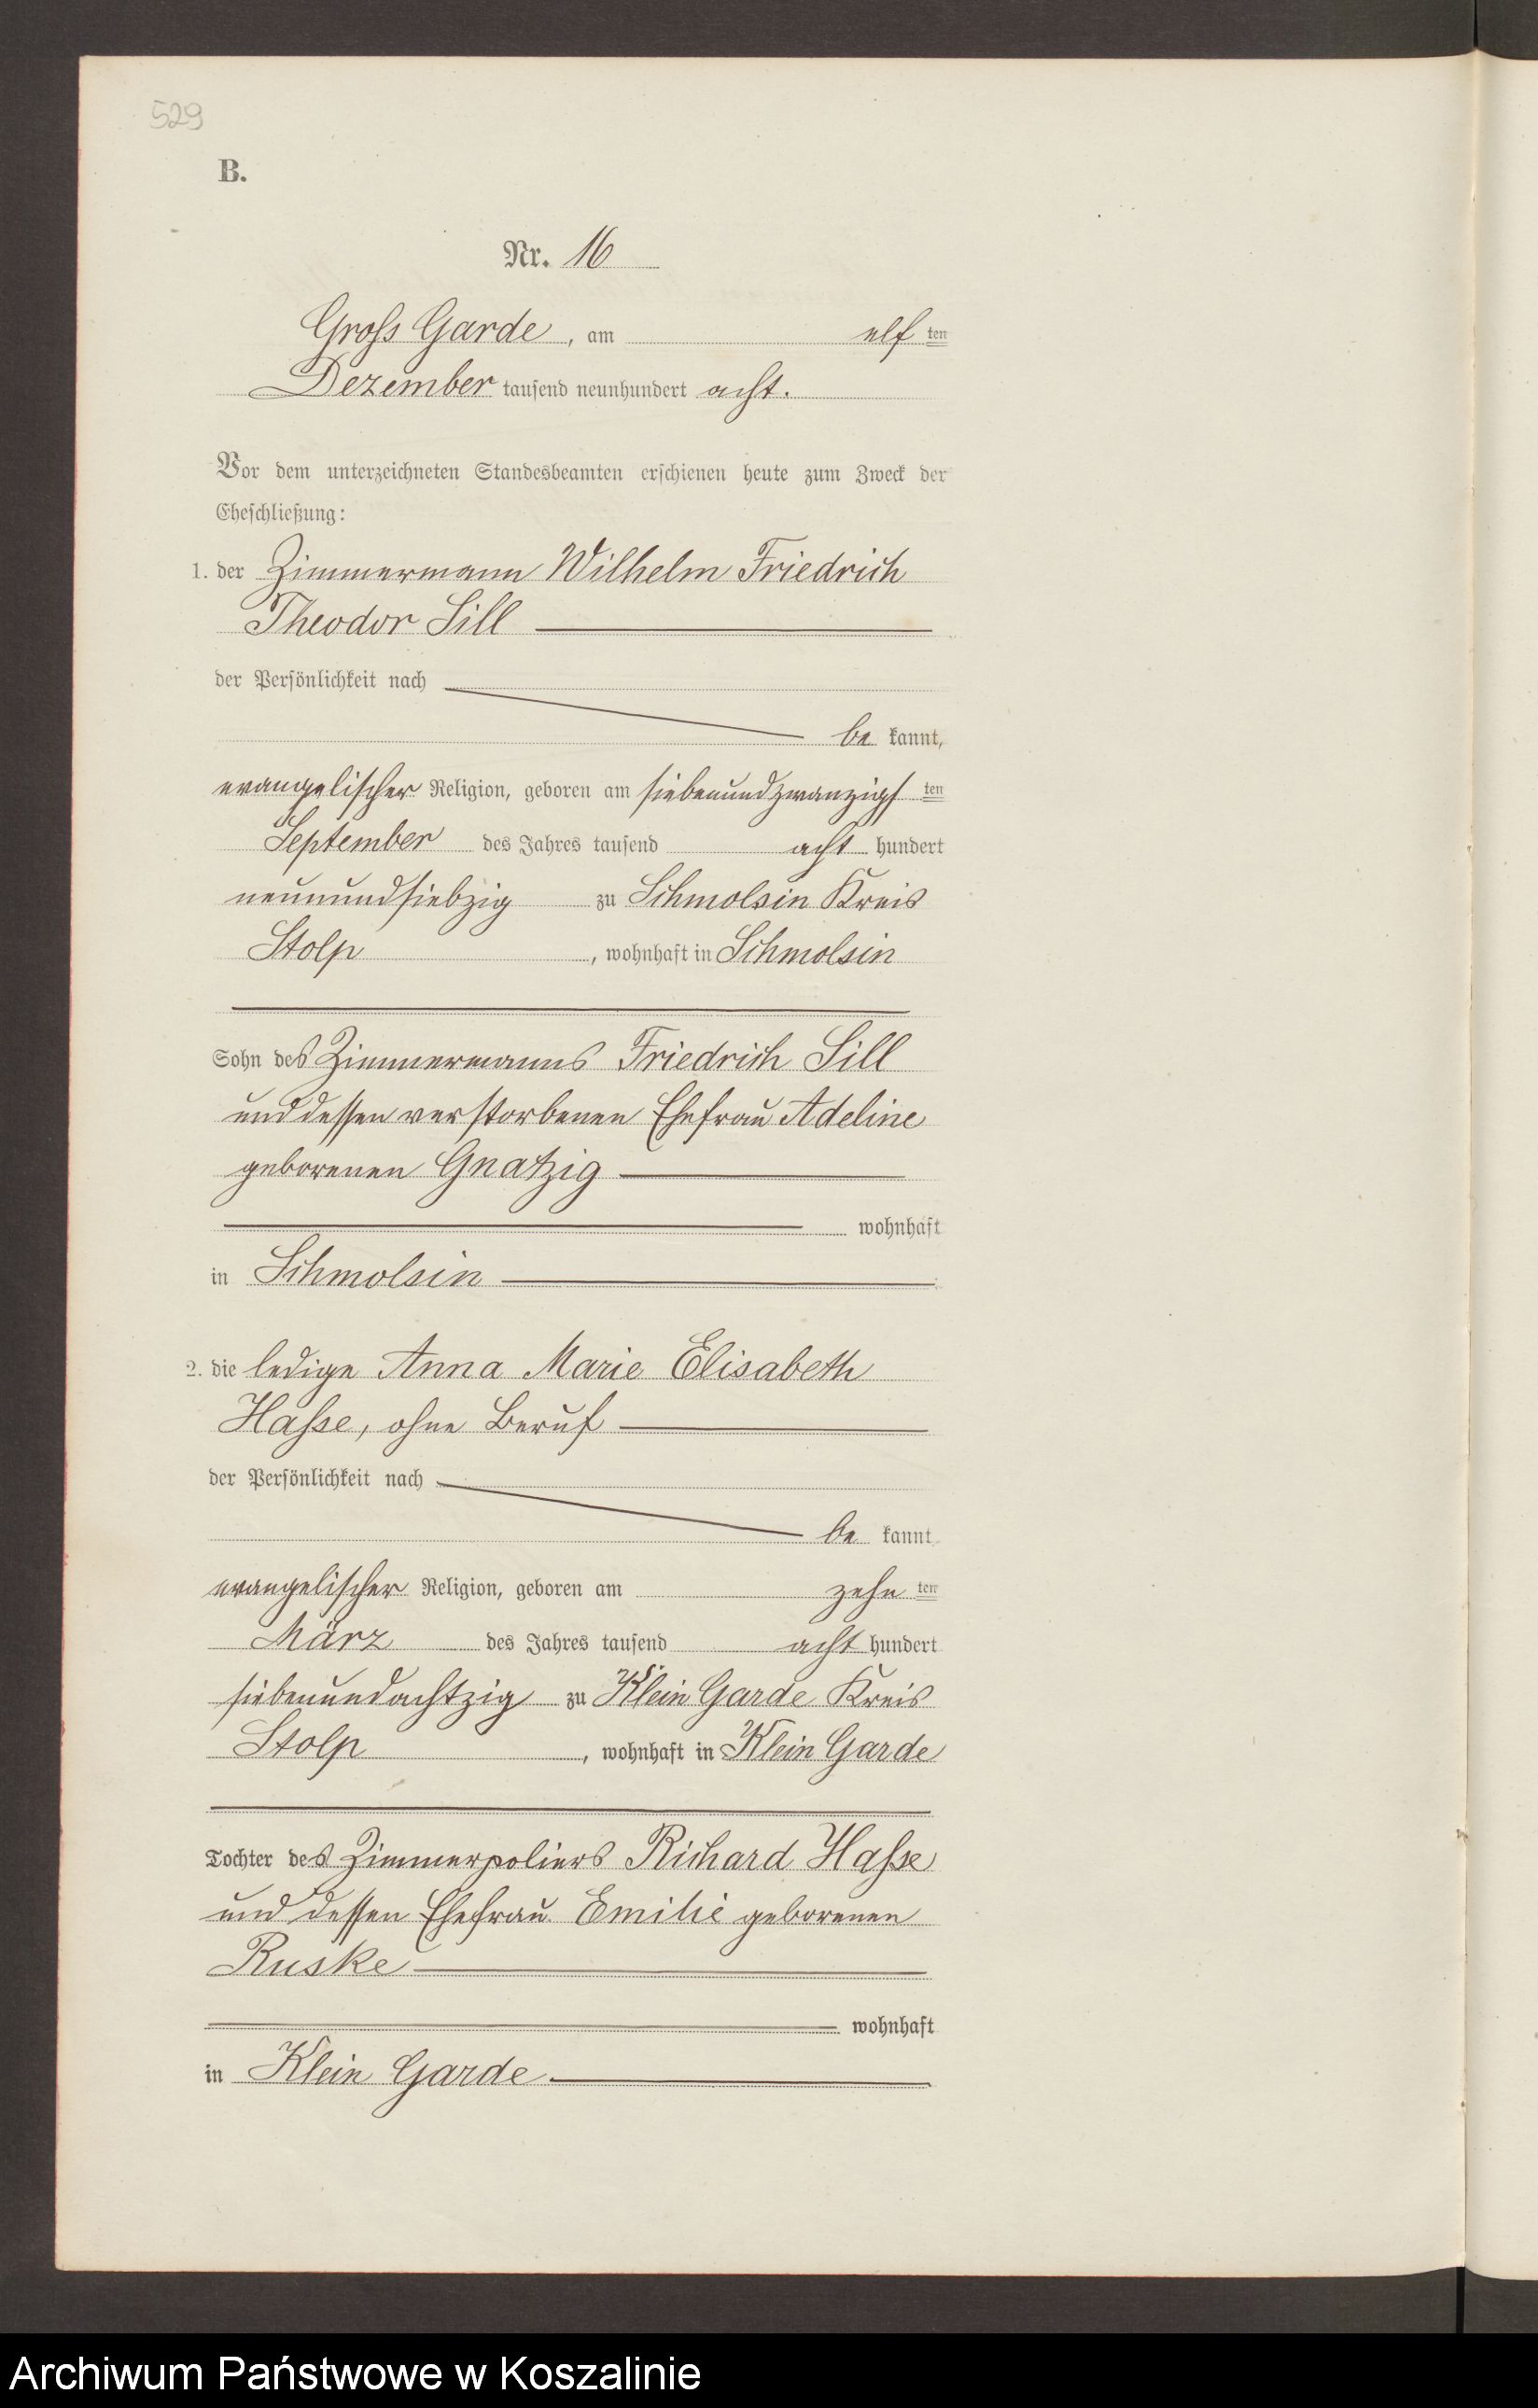 529
B.
Nr. 16
Gross Garde, am elf ten
Dezember tausend neunhundert acht.
Vor dem unterzeichneten Standesbeamten erschienen heute zum Zweck der
Eheschließung:
1. der Zimmermann Wilhelm Friedrich
Theodor Sill
der Persönlichkeit nach
be kannt,
evangelischer Religion, geboren am siebenundzwanzigs ten
September des Jahres tausend acht hundert
neunundsiebzig zu Schmolsin Kreis
Stolp, wohnhaft in Schmolsin
Sohn des Zimmermanns Friedrich Sill
und dessen verstorbenen Ehefrau Adeline
geborenen Gnatzig
wohnhaft
in Schmolsin
2. die ledige Anna Marie Elisabeth
Hasse, ohne Beruf
der Persönlichkeit nach
be kannt,
evangelischer Religion, geboren am zehn ten
März des Jahres tausend acht hundert
siebenundachtzig zu Klein Garde Kreis
Stolp, wohnhaft in Klein Garde
Tochter des Zimmerpoliers Richard Hasse
und dessen Ehefrau Emilie geborenen
Ruske
wohnhaft
in Klein Garde
Archiwum Państwowe w Koszalinie